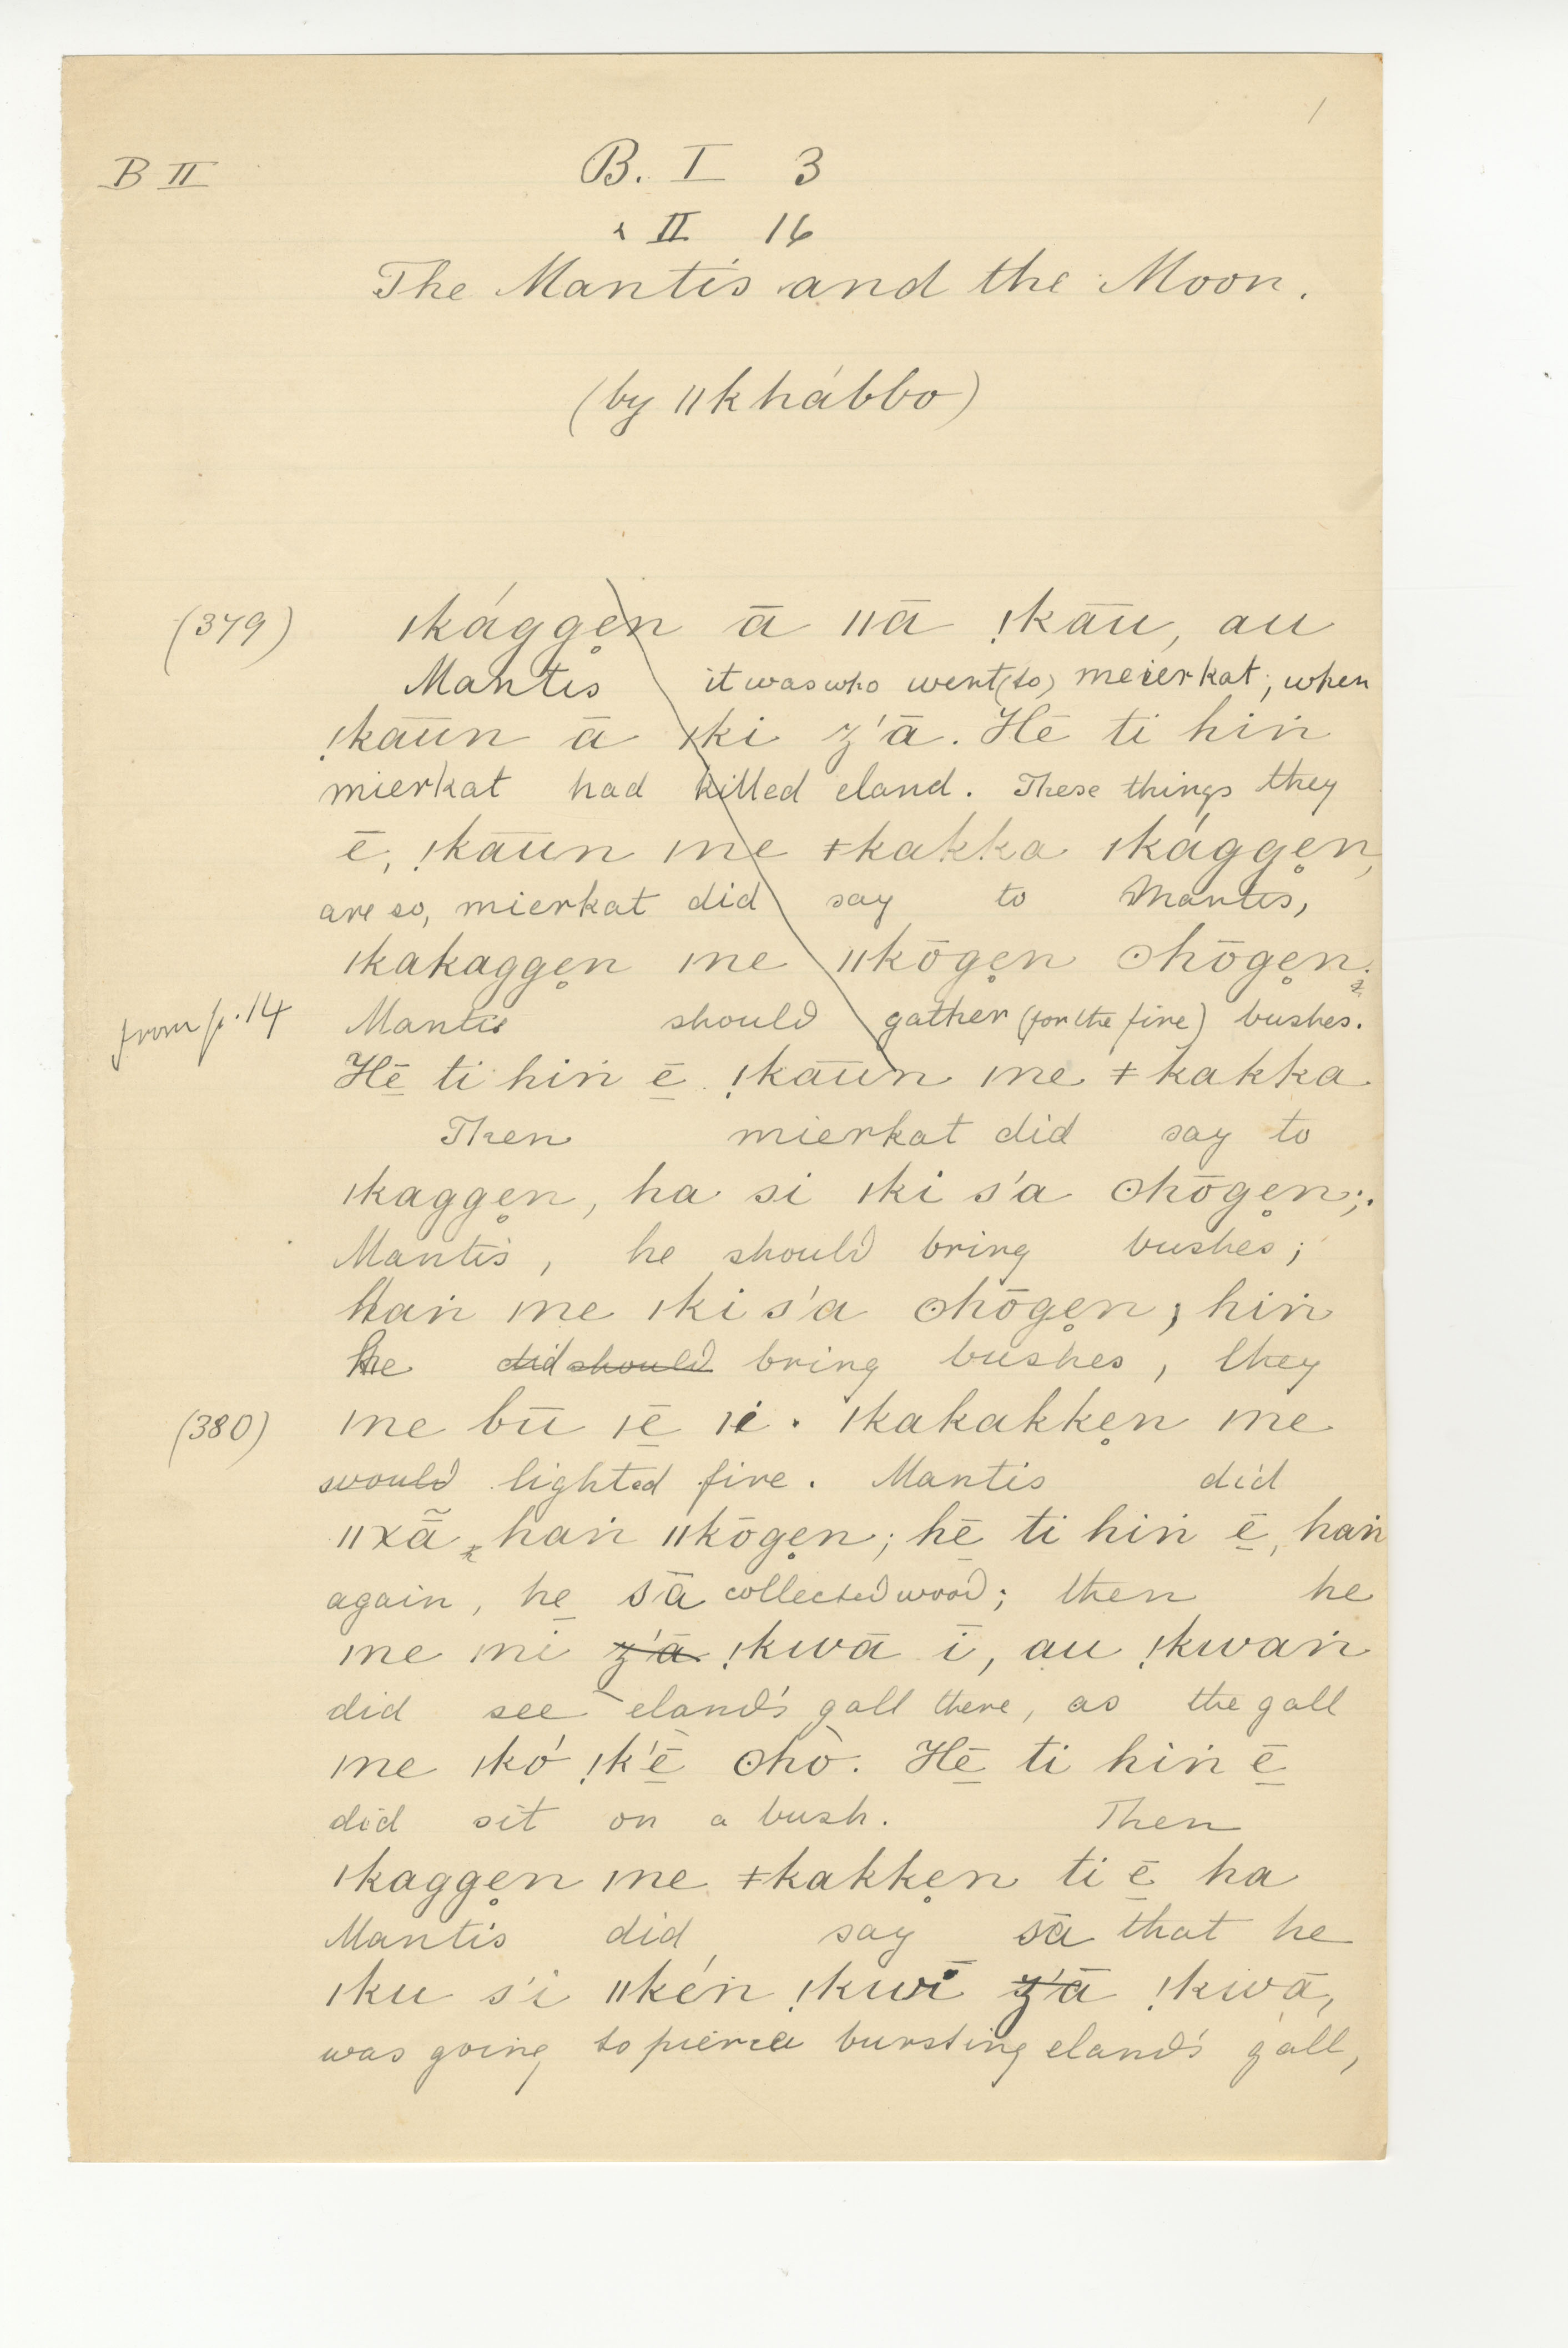 1
B II
B. I 3
" II 16
The Mantis and the Moon.
(by ǁkhábbo)
(379) ǀkágge̥n ā ǁā ǃkāū, au
Mantis it was who went (to) meierkat; when
ǃkāūn ā ǀki z'ā. Hē ti hiṅ
mierkat had killed eland. These things they
ē, ǃkāūn ǀne ǂkakka ǀkágge̥n,
are so, mierkat did say to Mantis,
ǀkakagge̥n ǀne ǁkōge̥n ʘhōge̥n.
from p. 14 Mantis should gather (for the fire) bushes.
Hē̱ ti hiṅ ē̱ ǃkāūn ǀne ǂkakka
Then mierkat did say to
ǀkagge̥n, ha si ǀki s'a ʘhōge̥n;
Mantis, he should bring bushes;
Haṅ ǀne ǀki s'a ʘhōge̥n; hiṅ
he did should bring bushes, they
(380) ǀne bū ǀē̱ ǀi. ǀkakakke̥n ǀne
would lighted fire. Mantis did
ǁxā̃, haṅ ǁkōge̥n; hē̱ ti hiṅ ē̱, haṅ
again, he sā collected wood; then he
ǀne ǀnī z'ā ǃkwā ī, au ǃkwaṅ
did see eland's gall there, as the gall
ǀne ǀkó ǃk'ē̱ ʘhò. Hē̱ ti hiṅ ē̱
did sit on a bush. Then
ǀkagge̥n ǀne ǂkakke̥n ti ē̱ ha
Mantis did say sā that he
ǀku s'i ǁkéṅ ǃkwī z'ā ǃkwā,
was going to pierce bursting eland's gall,